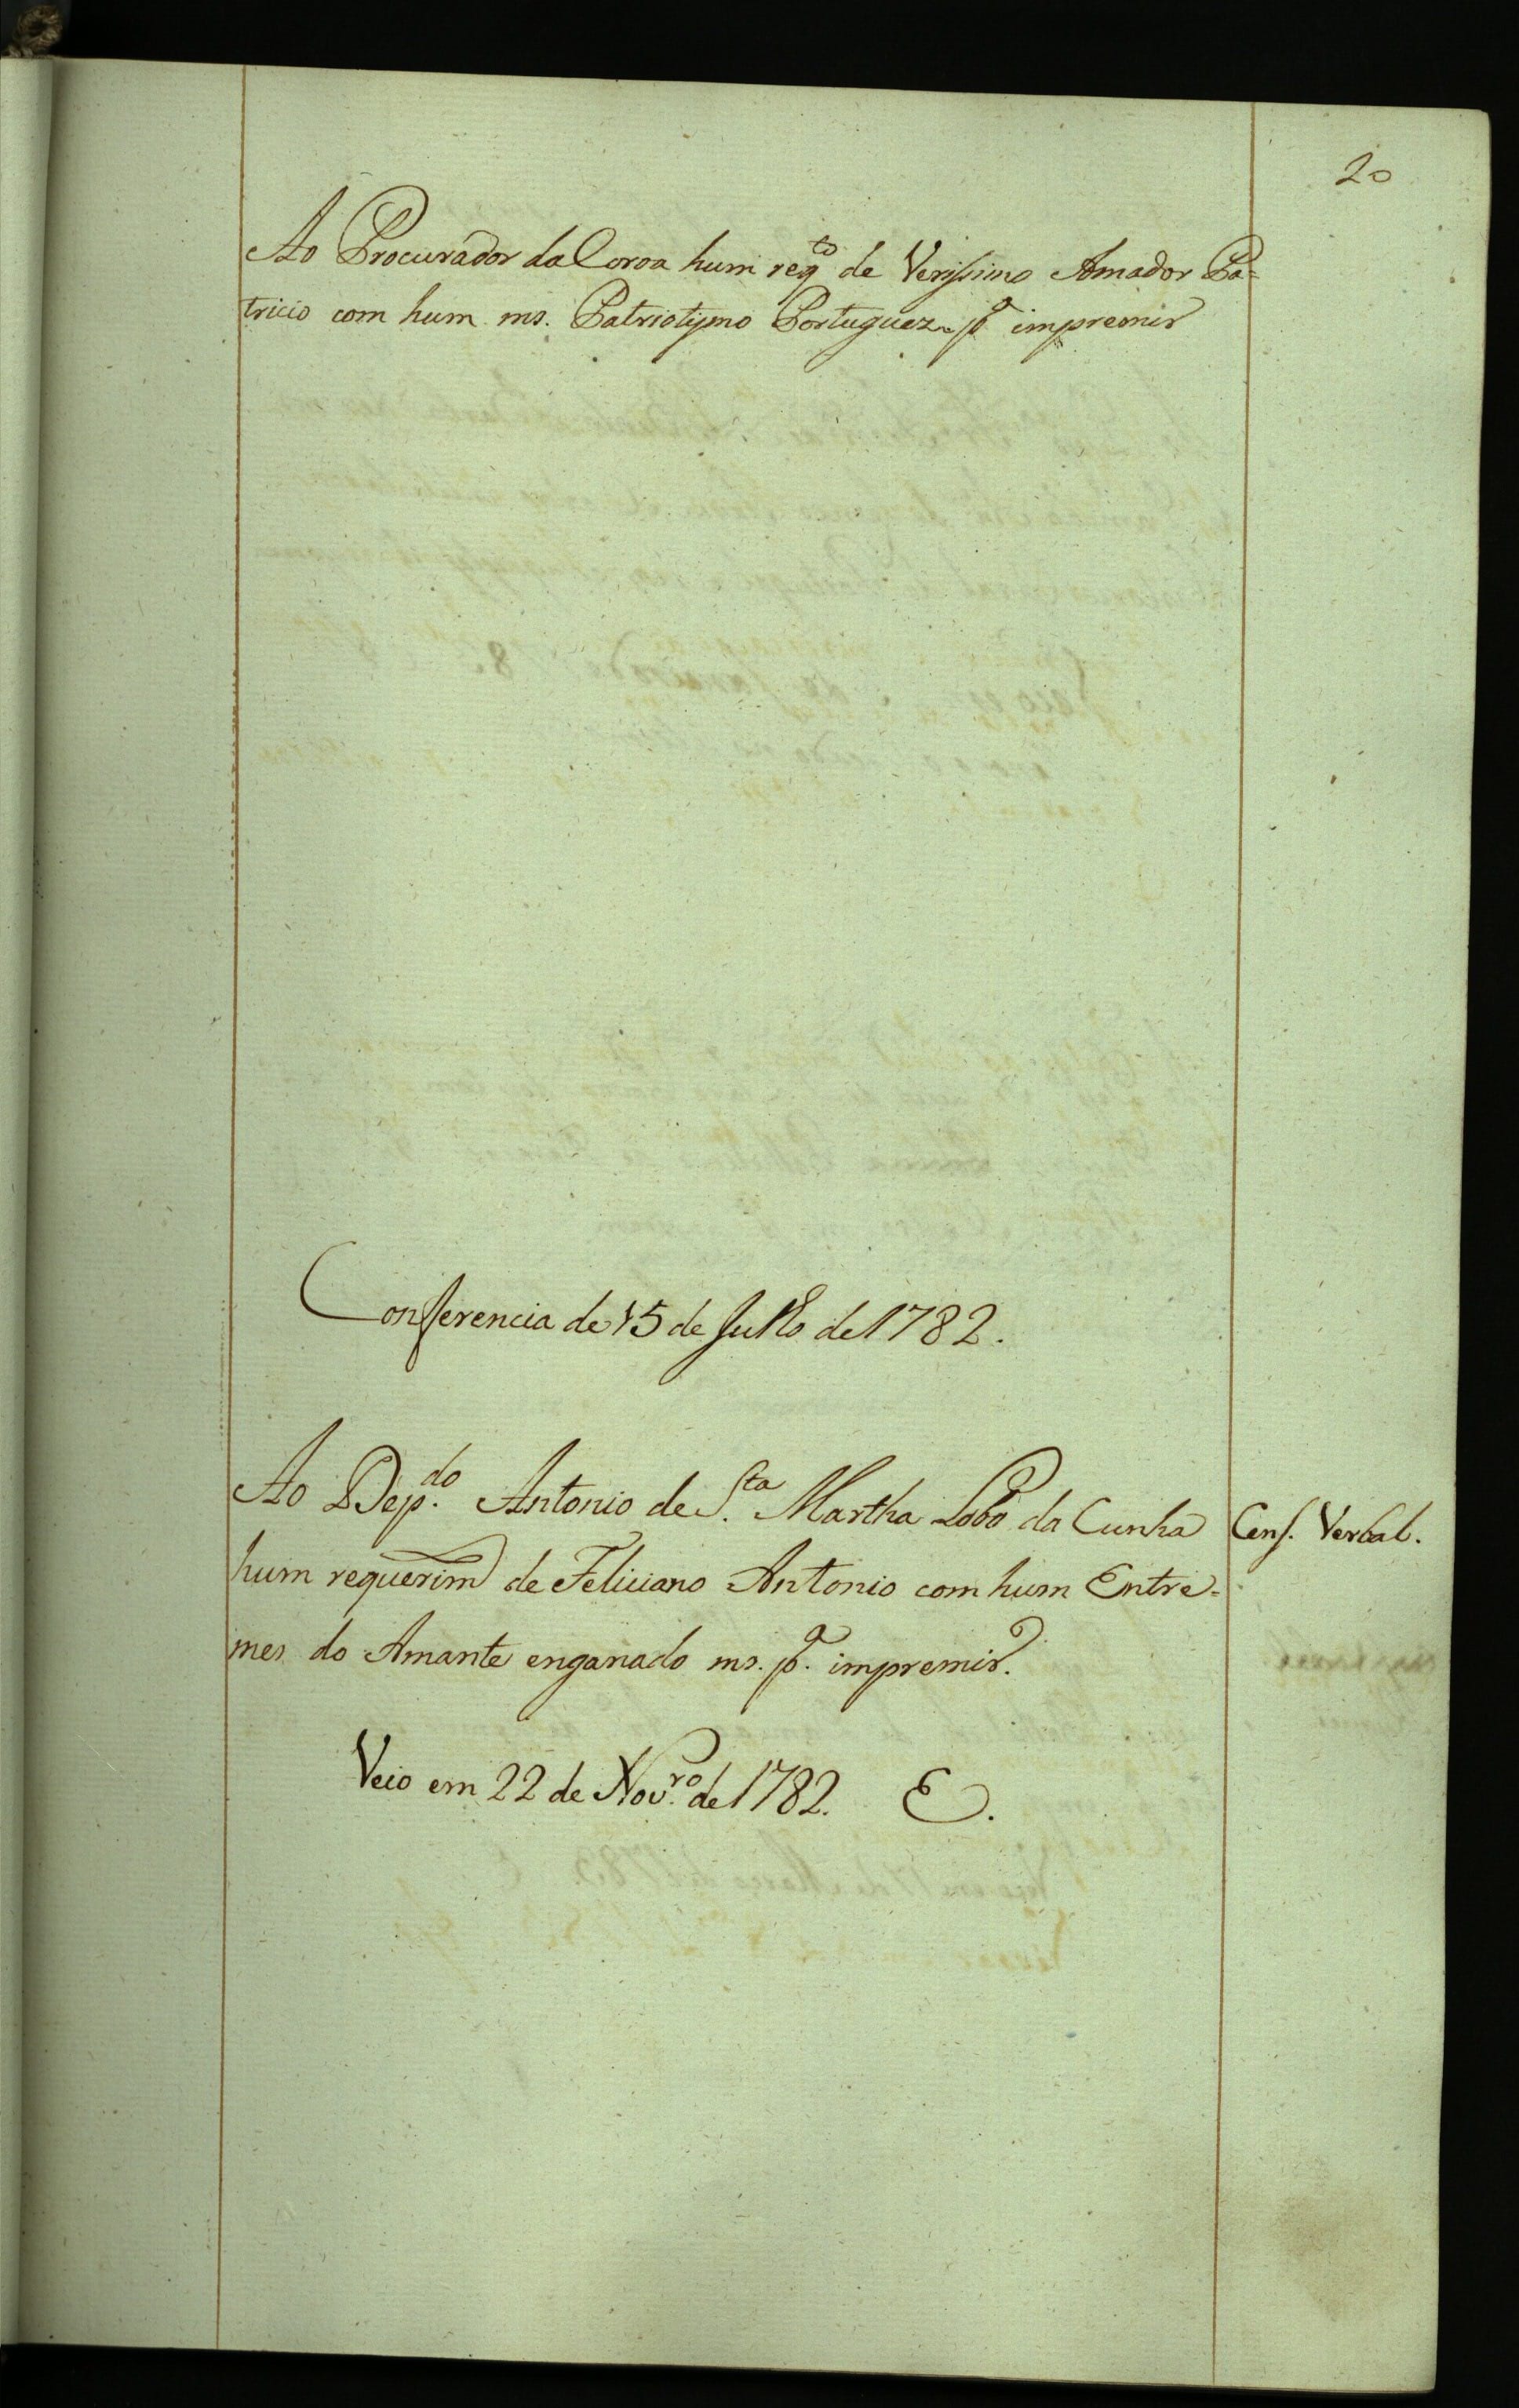 20
Ao Procurador da Coroa hum reqto de Verissimo Amador Pa-
tricio com hum ms. Patriotismo Portuguez pa impremir
Conferencia de 15 de Julho de 1782.
Ao Dep.do Antonio de S.ta Martha Lobo da Cunha
Cens. Verbal.
hum requerim de Feliciano Antonio com hum Entre-
mes do Amante enganado ms. pa. impremir.
Veio em 22 de Nov.ro de 1782. E.